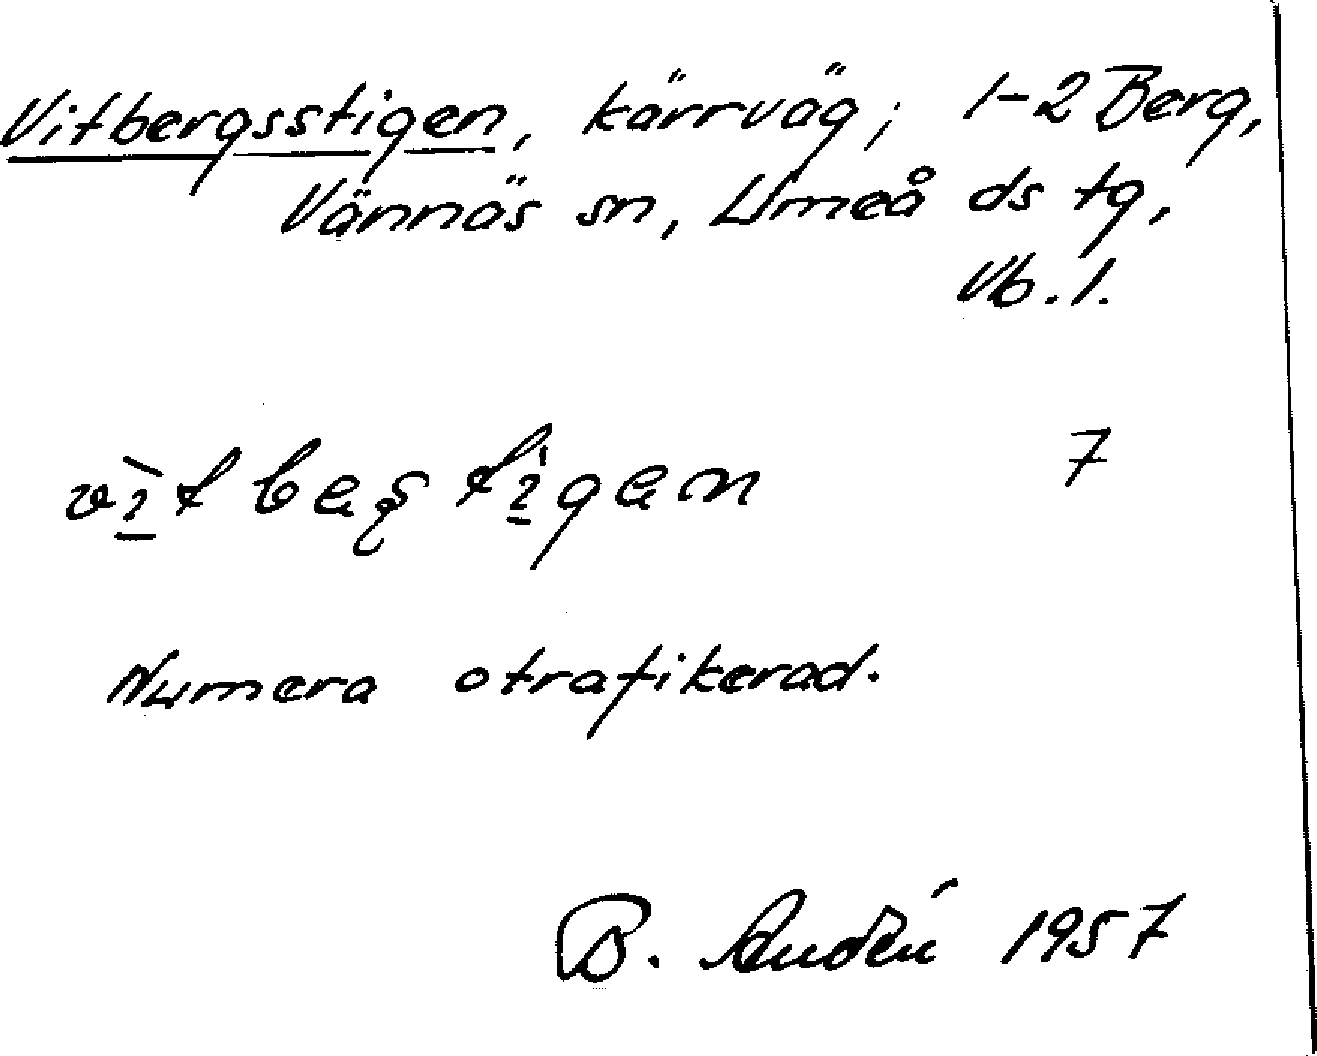 Vitbergsstigen, kärrväg; 1-2 Berg,
Vännäs sn, Umeå ds tg,
Vb. l.
7
Numera otrafikerad.
B. Audén 1957